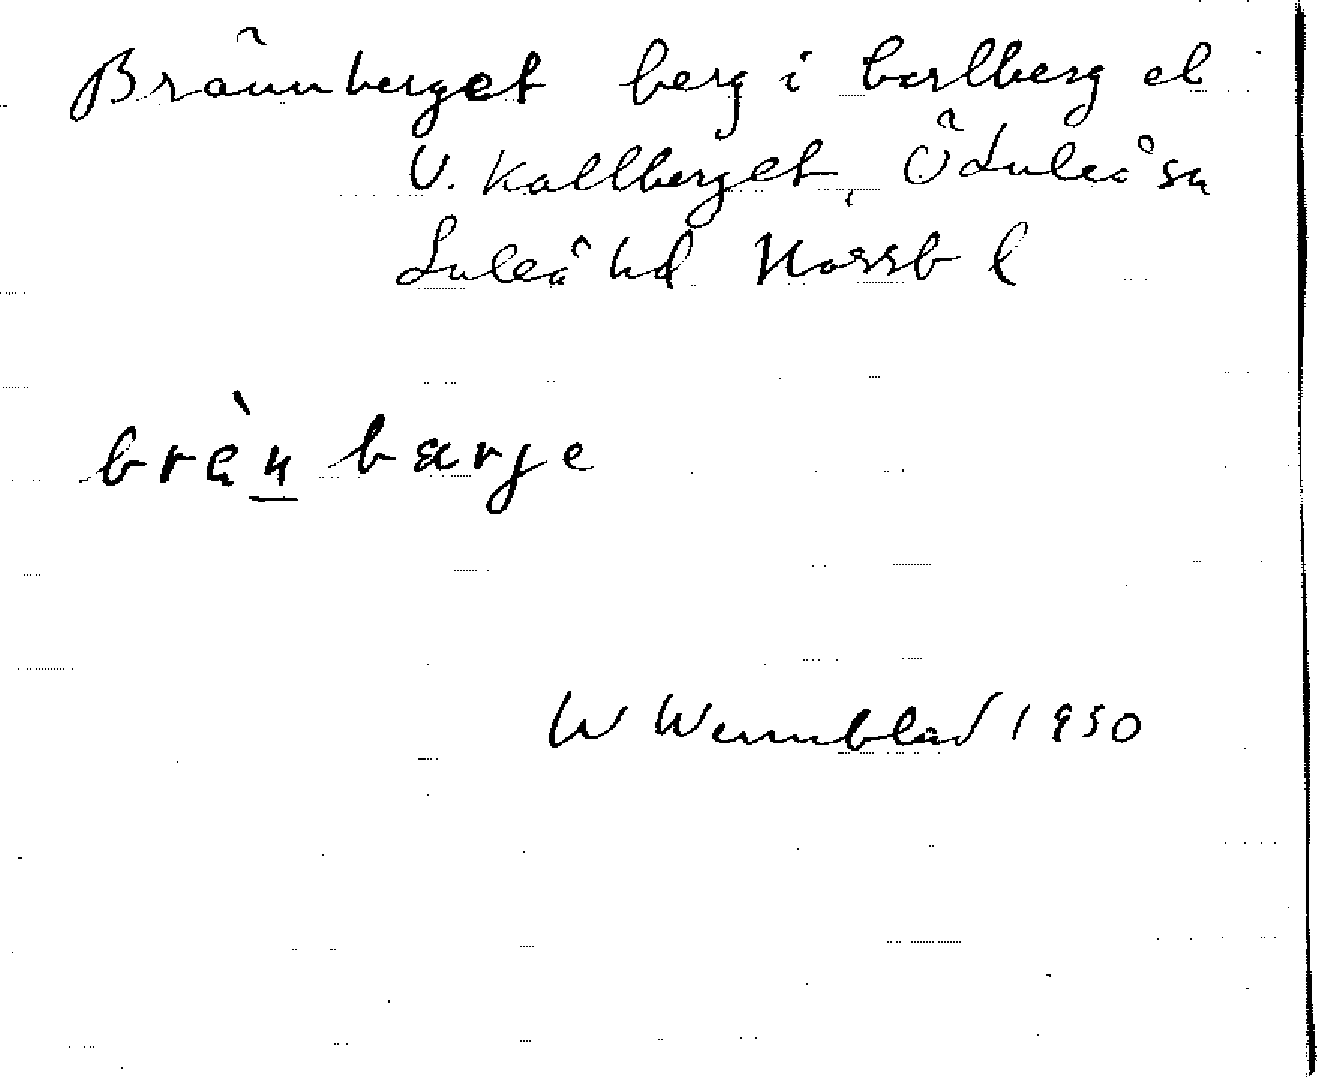 Brännberget berg i Carlberg el
V. Kallberget, Ö Luleå sn
Luleå hd Norrb l
brèn bærje
W Wennblad 1950